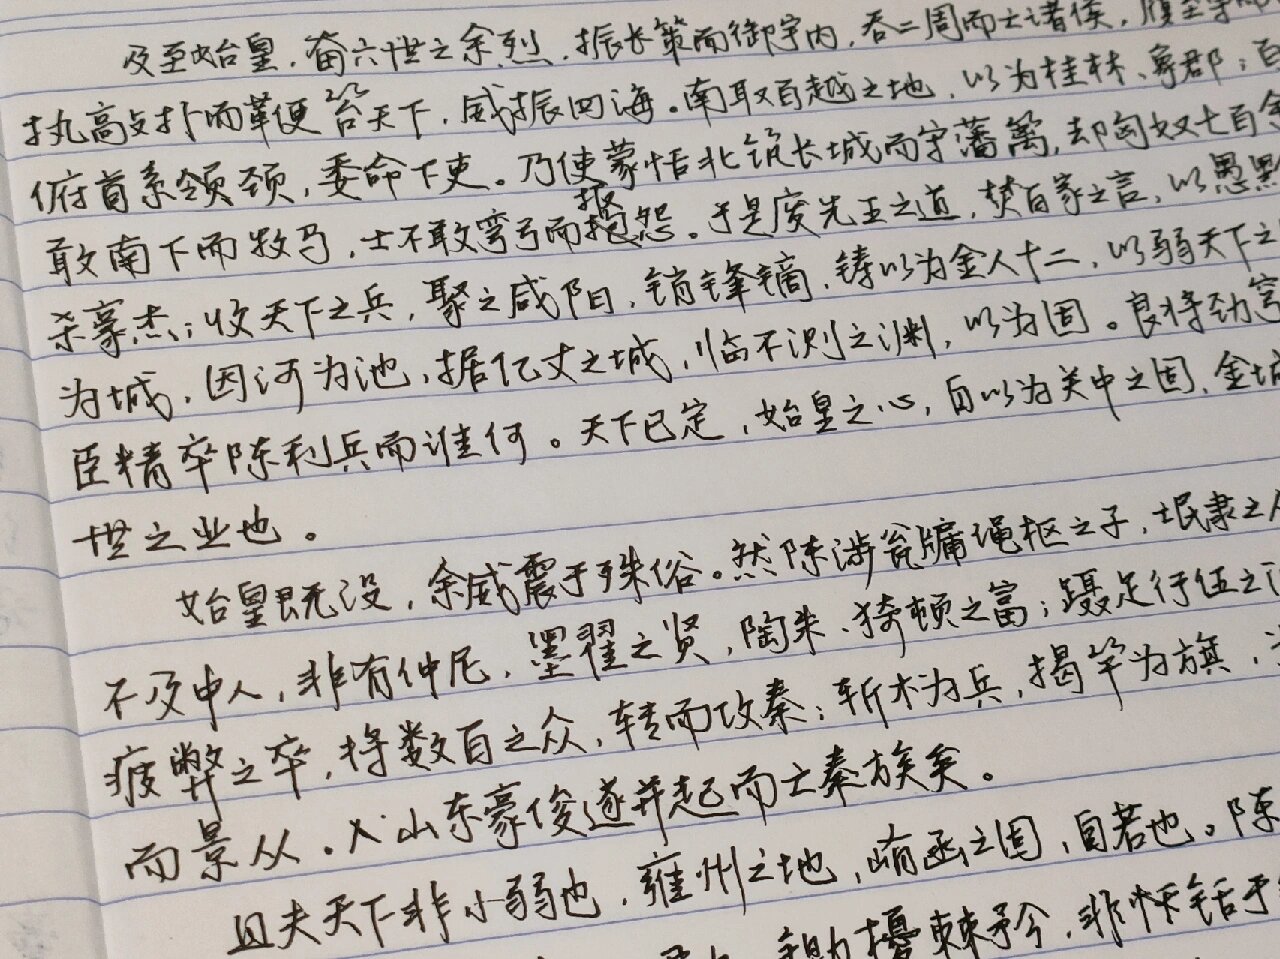 及至始皇，奋六世之余烈，振长策而御宇内，吞二周而亡诸侯，履至尊而
执高攴扑而革便笞天下，威振四海。南取百越之地，以为桂林、象郡；百
俯首系颈，委命下吏。乃使蒙恬北筑长城而守藩篱，却匈奴七百余
敢南下而牧马，士不敢弯弓而报怨。于是废先王之道，焚百家之言，以愚黔
杀豪杰；收天下之兵，聚之咸阳，销锋镝，铸以为金人十二，以弱天下之
为城，因河为池，据亿丈之城，临不测之渊，以为固。良将劲弩
臣精卒陈利兵而谁何。天下已定，始皇之心，自以为关中之固，金城
世之业也。
始皇既没，余威震于殊俗。然陈涉瓮牖绳枢之子，氓隶之人
不及中人，非有仲尼，墨翟之贤，陶朱、猗顿之富；蹑足行伍之
疲弊之卒，将数百之众，转而攻秦；斩木为兵，揭竿为旗，
而景从。山东豪俊遂并起而亡秦族矣。
且夫天下非小弱也，雍州之地，崤函之固，自若也。陈
耰棘矜，非铦于